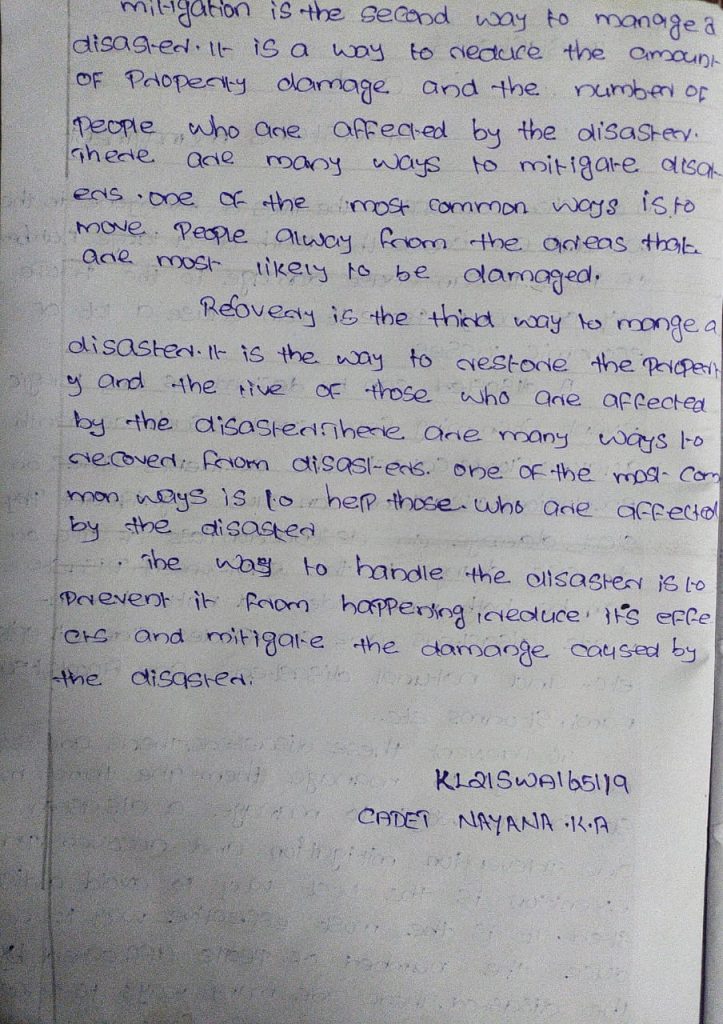 mitigation is the second way to manage a
disaster. It is a way to reduce the amount
of Property damage and the number of
People who are affected by the disaster.
There are many ways to mitigate disat
ers. one of the most common ways is to
move People alway from the areas that
are most likely to be damaged.
Recovery is the third way to mange a
disaster. It is the way to restore the Propert
y and the live of those who are affected
by the disaster. There are many ways to
recover from disasters. one of the most com
mon ways is to help those who are affected
by the disaster
The way to handle the disaster is to
Prevent it from happening, reduce it's effe
cts and mitigate the damange caused by
the disaster.
KL21SWA165119
CADET NAYANA .K.A